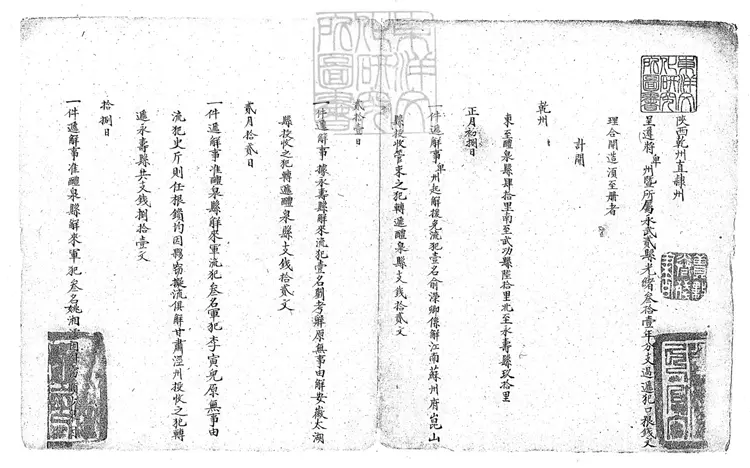 陝西乾州直隸州
呈遵將卑州暨所屬永武貳縣光緒叁拾壹年分支過遞犯口粮錢文
理合開造須至冊者
計開
乾州
東至醴泉縣肆拾里南至武功縣陸拾里北至永壽縣玖拾里
正月初捌日
一件遞解事卑州起解援免流犯壹名俞濚卿係解江南蘇州府崑山
縣投收管束之犯轉遞醴泉縣支錢拾貳文
貳拾壹日
一件遞解事據永壽縣解來流犯壹名劉孝解原無事由解安徽太湖
縣投收之犯轉遞醴泉縣支錢拾貳文
貳月拾貳日
一件遞解事准醴泉縣解來軍流犯叁名軍犯李寅兒原無事由
流犯史斤則任根鎖均因夥竊擬流俱解甘肅涇州投收之犯轉
遞永壽縣共支錢捌拾壹文
拾捌日
一件遞解事准醴泉縣解來軍犯叁名姚湘
東洋文化研究所圖書